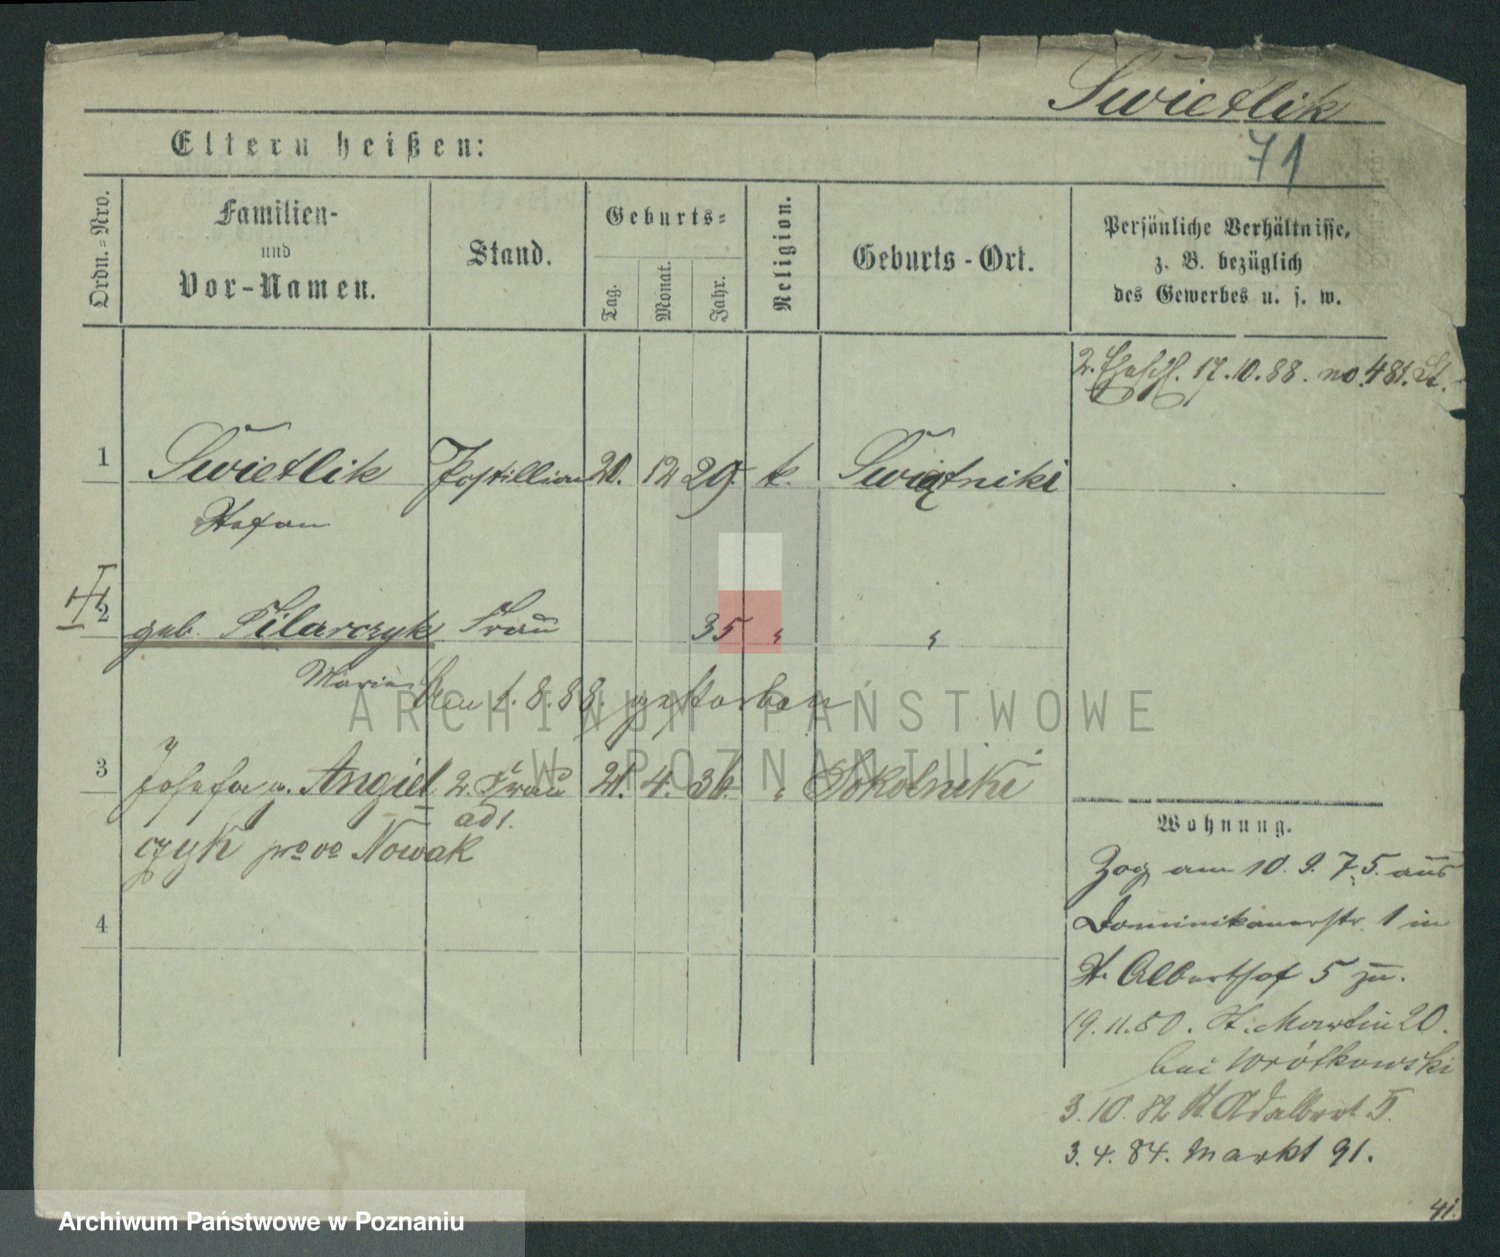 Swietlik
71
Eltern heißen:
Ordn.-Nro.
Familien-
und
Vor-Namen.
Stand.
Geburts-
Tag.
Monat.
Jahr.
Religion.
Geburts-Ort.
Persönliche Verhältnisse,
z. B. bezüglich
des Gewerbes u. s. w.
2. Ehesch. 17.10.88. no. 481. St.
1 Swietlik Postillion 20. 12 29. k. Swiątniki
Stefan
2 geb. Pilarczyk Frau 35 " "
Marie den 1.8.88. gestorben
3 Josefa v. Angiel 2. Frau 21. 4. 36. " Sokolniki
ad 1.
czyk Nowak
4
Wohnung.
Zog am 10.9.75. aus
Dominikanerstr. 1 in
St. Alberthof 5 zu.
19.11.80. St. Martin 20.
bei Wrótkowski
3.10.82 St Adalbert 5.
3.4.84. Markt 91.
41.
ARCHIWUM PAŃSTWOWE
W POZNANIU
Archiwum Państwowe w Poznaniu